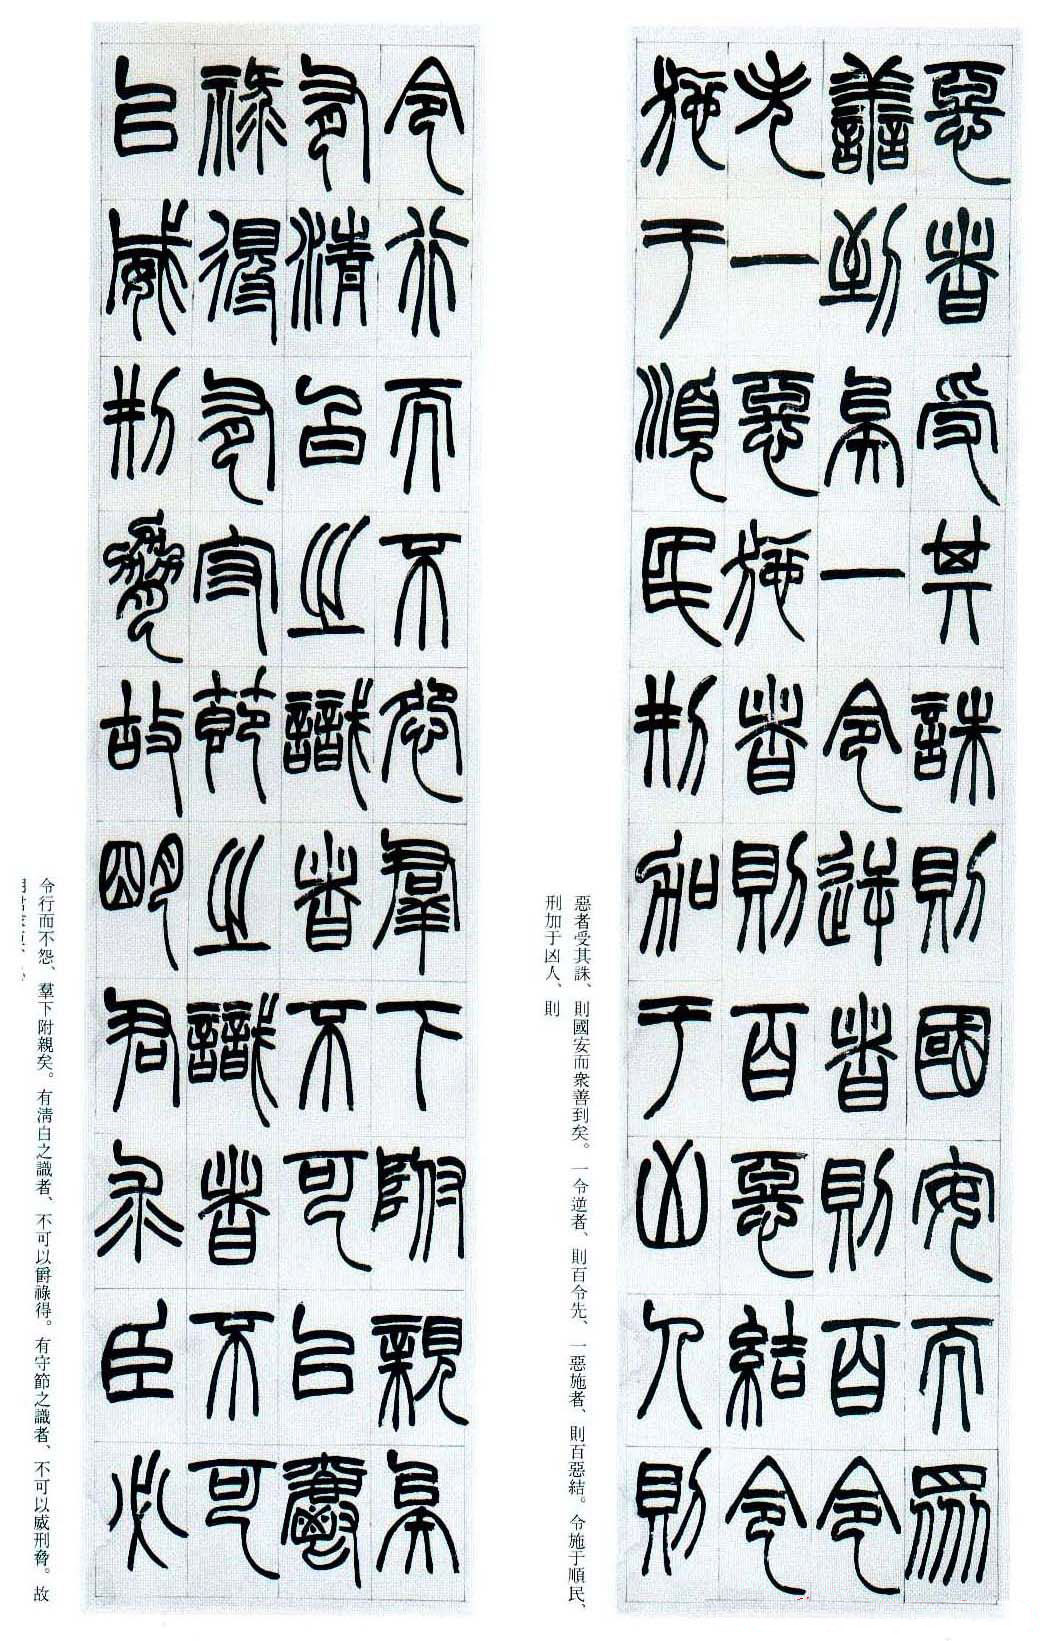 惡者受其誅則國安而眾
善到矣一令逆者則百令
先一惡施者則百惡結令
施于順民刑加于凶人則
惡者受其誅、則國安而衆善到矣。一令逆者、則百令先、一惡施者、則百惡結。令施于順民、
刑加于凶人、則
令行而不怨羣下附親矣
有清白之識者不可以爵
祿得有守節之識者不可
以威刑脅故明君求臣必
令行而不怨、羣下附親矣。有淸白之識者、不可以爵祿得。有守節之識者、不可以威刑脅。故